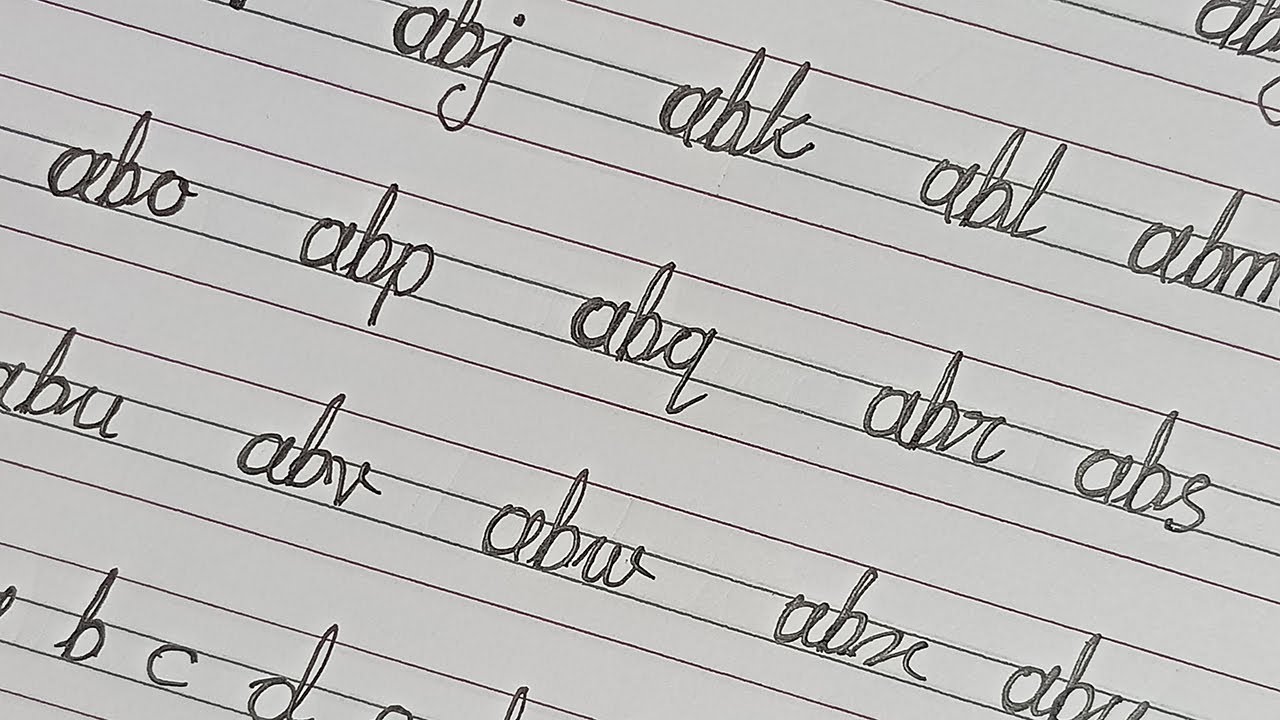 abj abk abl abm
abo abp abq abr abs
abu abv abw abx aby
b c d